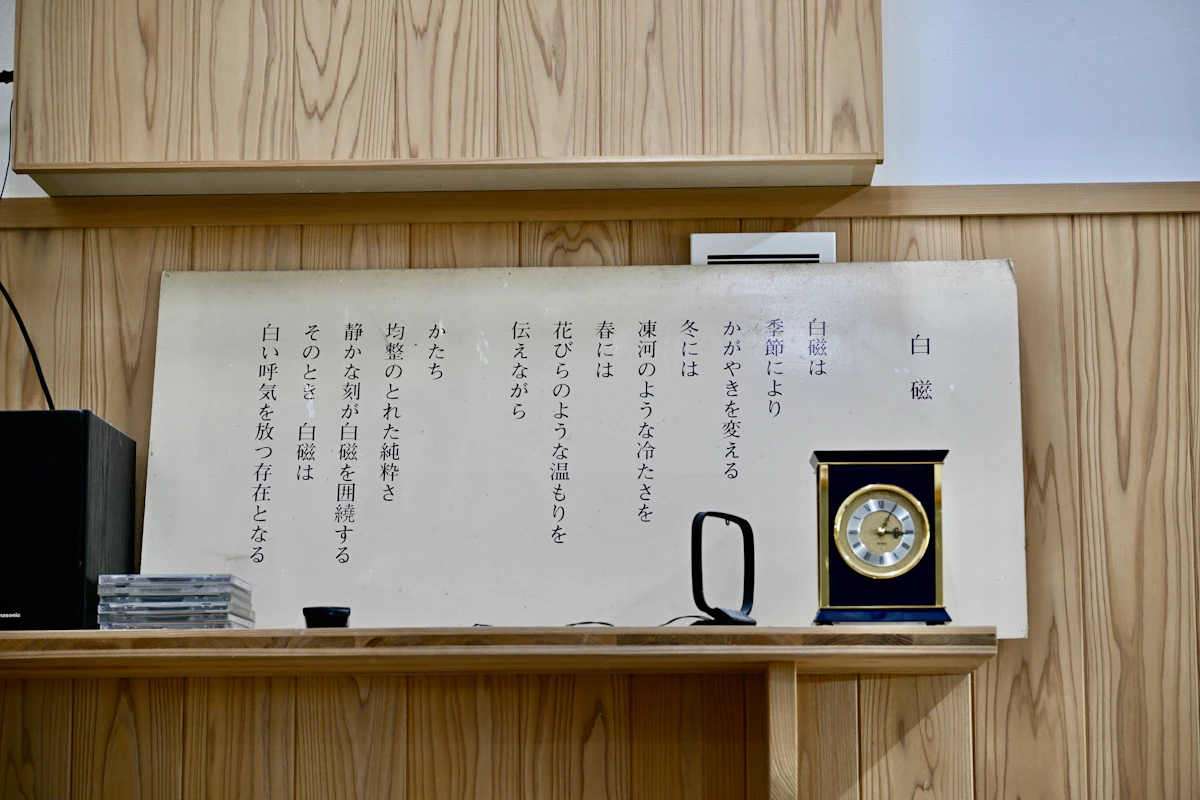 白磁
白磁は
季節により
かがやきを変える
冬には
凍河のような冷たさを
春には
花びらのような温もりを
伝えながら
かたち
均整のとれた純粋さ
静かな刻が白磁を囲繞する
そのとき 白磁は
白い呼気を放つ存在となる